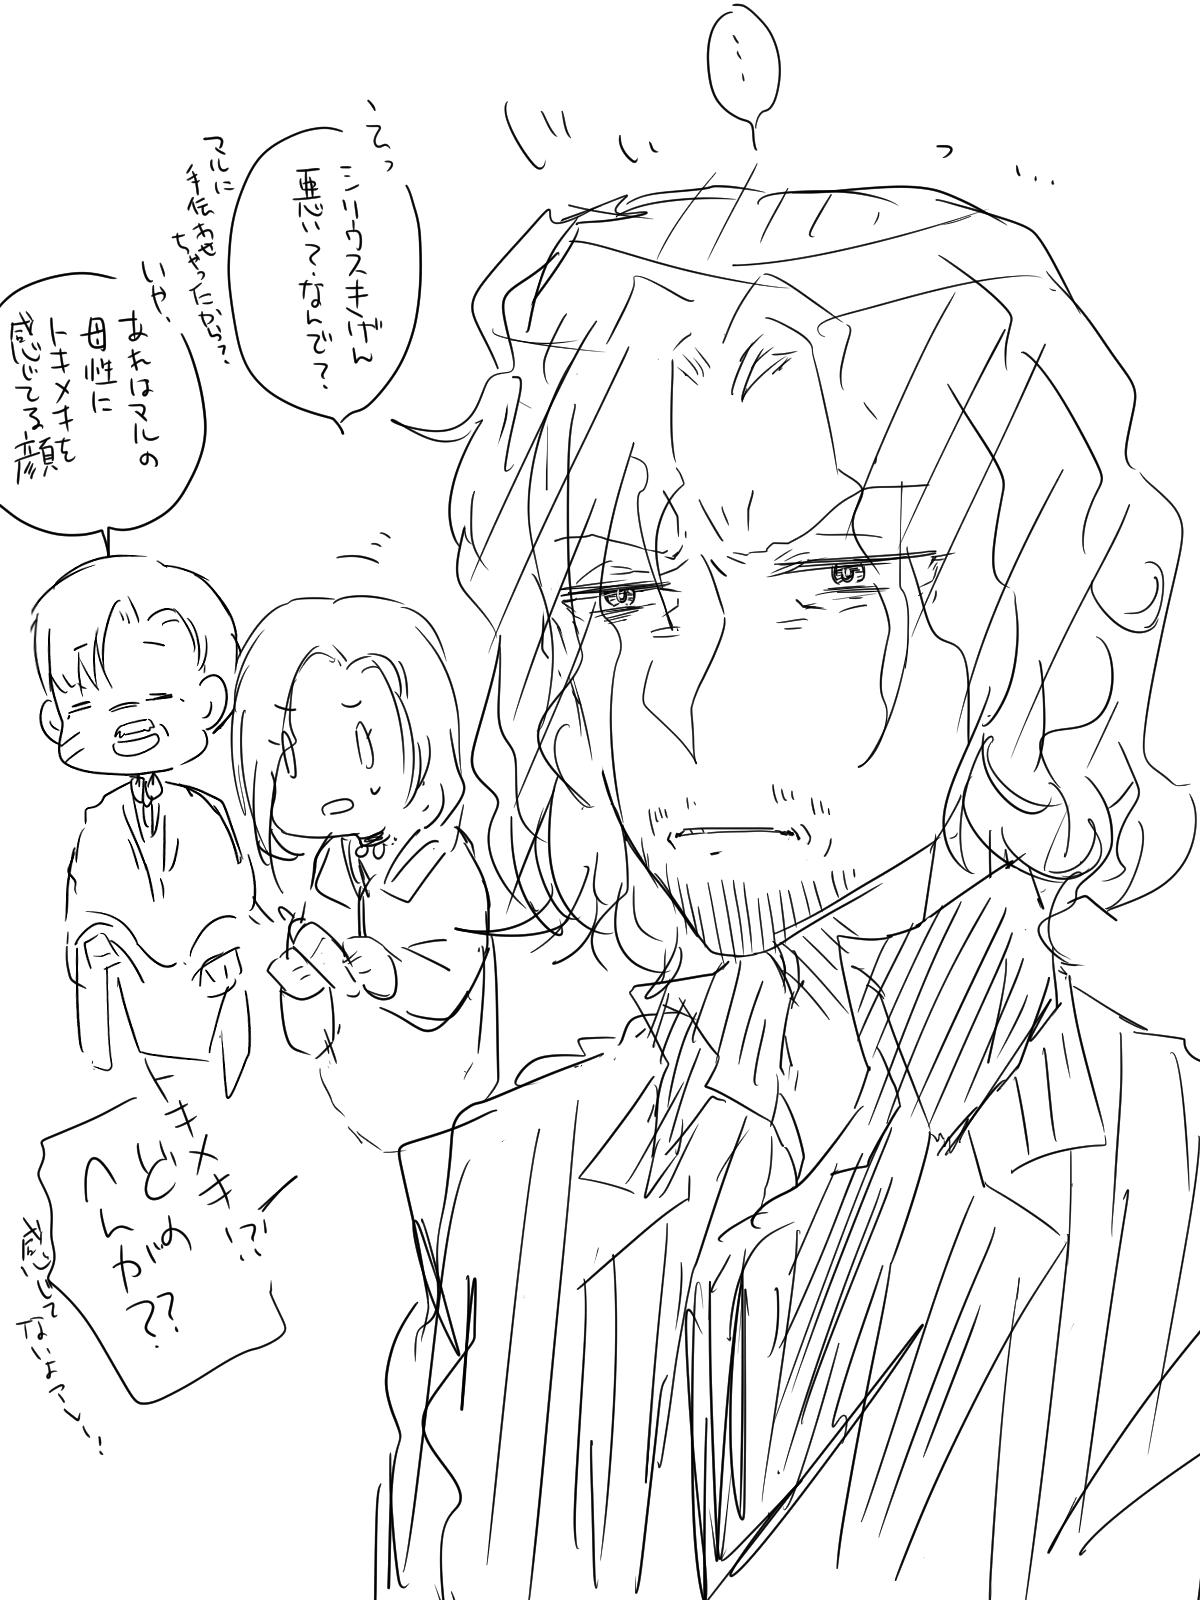 …
てっ
シリウスきげん
悪いて、なんで?
マルに
手伝わせ
ちゃったから?
いや、
あれはマルの
母性に
トキメキを
感じてる顔
トキメキ!?
どの
へんが??
感じて
ないよアレ!!